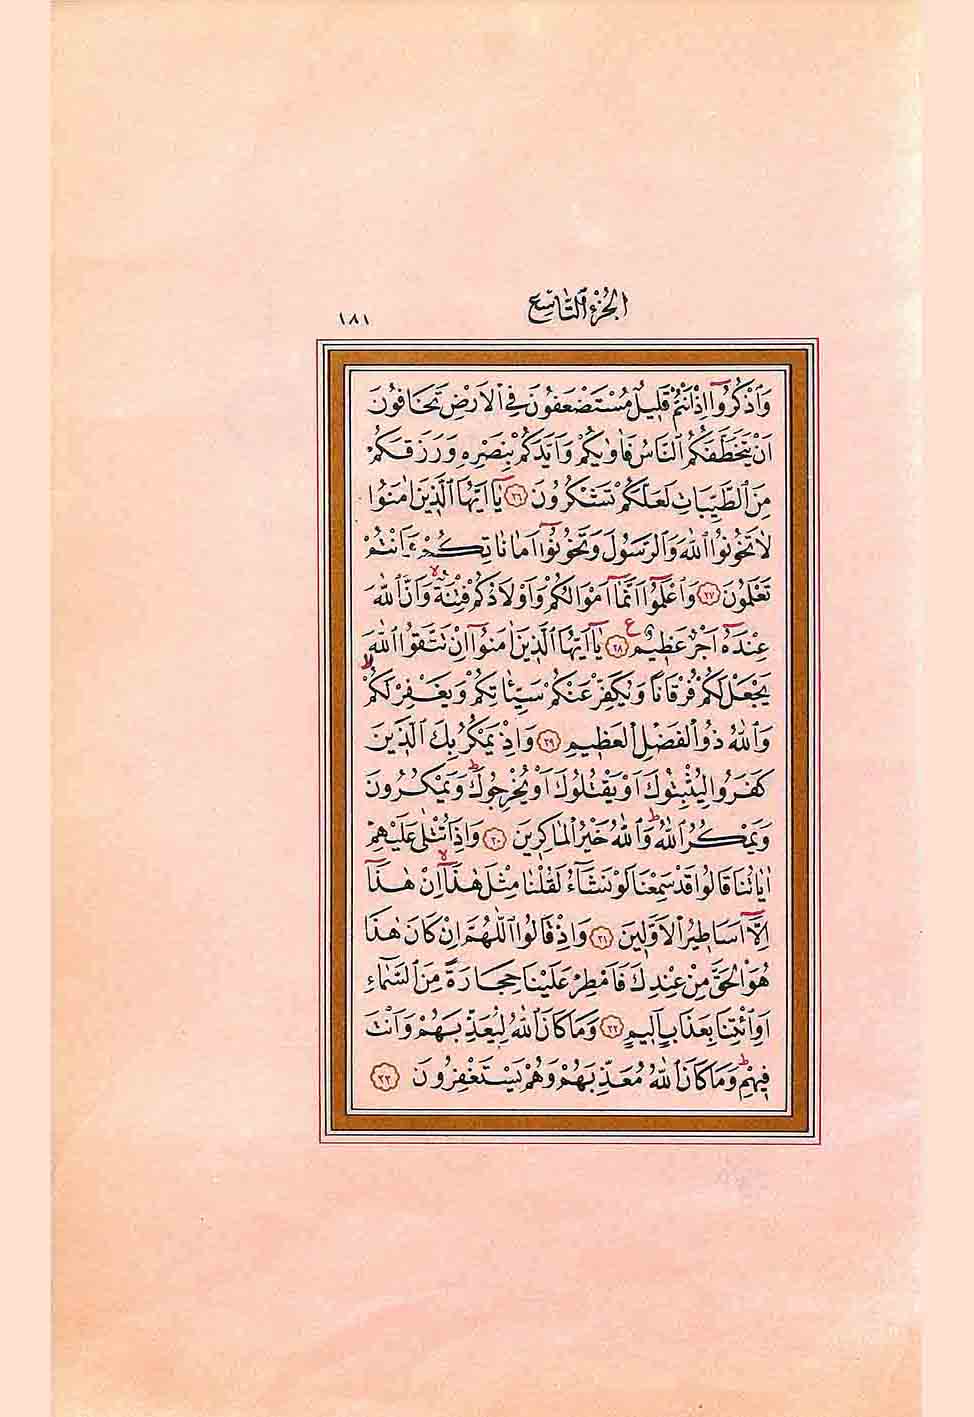 الجزء التاسع
١٨١
وَاذْكُرُوٓا اِذْ اَنْتُمْ قَل۪يلٌ مُسْتَضْعَفُونَ فِي الْاَرْضِ تَخَافُونَ
اَنْ يَتَخَطَّفَكُمُ النَّاسُ فَاٰوٰيكُمْ وَاَيَّدَكُمْ بِنَصْرِه۪ وَرَزَقَكُمْ
مِنَ الطَّيِّبَاتِ لَعَلَّكُمْ تَشْكُرُونَ ﴿٢٦﴾ يَٓا اَيُّهَا الَّذ۪ينَ اٰمَنُوا
لَا تَخُونُوا اللّٰهَ وَالرَّسُولَ وَتَخُونُٓوا اَمَانَاتِكُمْ وَاَنْتُمْ
تَعْلَمُونَ ﴿٢٧﴾ وَاعْلَمُٓوا اَنَّمَٓا اَمْوَالُكُمْ وَاَوْلَادُكُمْ فِتْنَةٌۙ وَاَنَّ اللّٰهَ
عِنْدَهُٓ اَجْرٌ عَظ۪يمٌ۟ ﴿٢٨﴾ يَٓا اَيُّهَا الَّذ۪ينَ اٰمَنُٓوا اِنْ تَتَّقُوا اللّٰهَ
يَجْعَلْ لَكُمْ فُرْقَانًا وَيُكَفِّرْ عَنْكُمْ سَيِّـَٔاتِكُمْ وَيَغْفِرْ لَكُمْۜ
وَاللّٰهُ ذُو الْفَضْلِ الْعَظ۪يمِ ﴿٢٩﴾ وَاِذْ يَمْكُرُ بِكَ الَّذ۪ينَ
كَفَرُوا لِيُثْبِتُوكَ اَوْ يَقْتُلُوكَ اَوْ يُخْرِجُوكَۜ وَيَمْكُرُونَ
وَيَمْكُرُ اللّٰهُۜ وَاللّٰهُ خَيْرُ الْمَاكِر۪ينَ ﴿٣٠﴾ وَاِذَا تُتْلٰى عَلَيْهِمْ
اٰيَاتُنَا قَالُوا قَدْ سَمِعْنَا لَوْ نَشَٓاءُ لَقُلْنَا مِثْلَ هٰذَٓاۙ اِنْ هٰذَٓا
اِلَّٓا اَسَاط۪يرُ الْاَوَّل۪ينَ ﴿٣١﴾ وَاِذْ قَالُوا اللّٰهُمَّ اِنْ كَانَ هٰذَا
هُوَ الْحَقَّ مِنْ عِنْدِكَ فَاَمْطِرْ عَلَيْنَا حِجَارَةً مِنَ السَّمَٓاءِ
اَوِ ائْتِنَا بِعَذَابٍ اَل۪يمٍ ﴿٣٢﴾ وَمَا كَانَ اللّٰهُ لِيُعَذِّبَهُمْ وَاَنْتَ
ف۪يهِمْۜ وَمَا كَانَ اللّٰهُ مُعَذِّبَهُمْ وَهُمْ يَسْتَغْفِرُونَ ﴿٣٣﴾